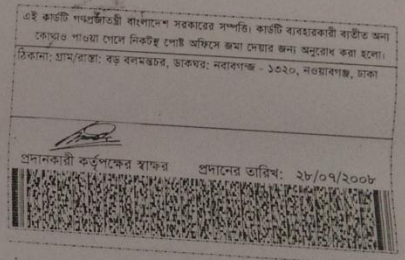 এই কার্ডটি গণপ্রজাতন্ত্রী বাংলাদেশ সরকারের সম্পত্তি। কার্ডটি ব্যবহারকারী ব্যতীত অন্য
কোথাও পাওয়া গেলে নিকটস্থ পোষ্ট অফিসে জমা দেয়ার জন্য অনুরোধ করা হলো।
ঠিকানা: গ্রাম/রাস্তা: বড় বলমন্তচর, ডাকঘর: নবাবগন্জ - ১৩২০, নওয়াবগঞ্জ, ঢাকা
প্রদানকারী কর্তৃপক্ষের স্বাক্ষর প্রদানের তারিখ: ২৮/০৭/২০০৮